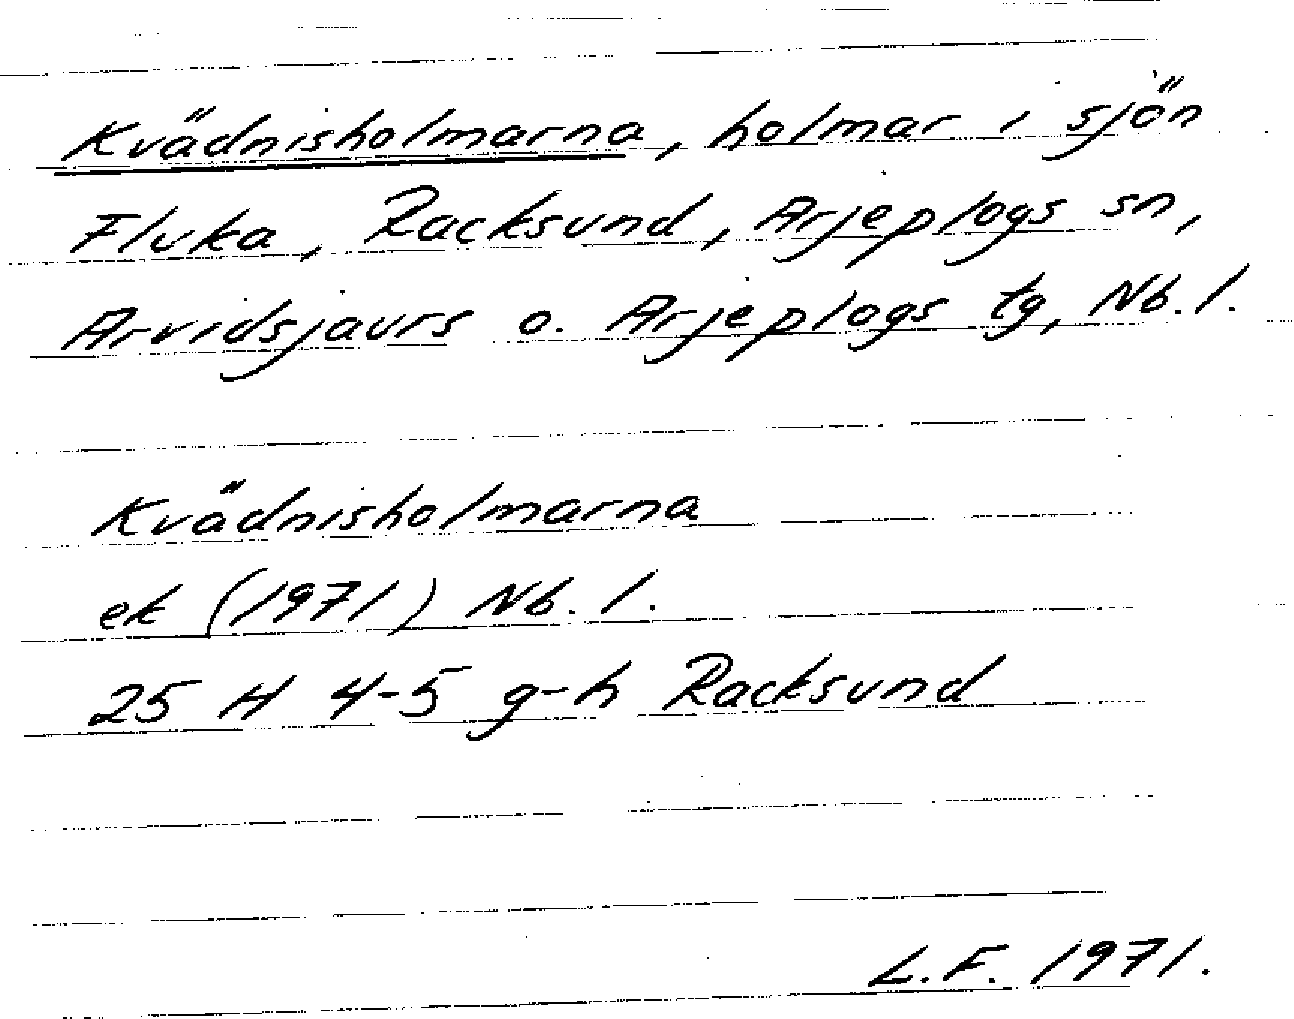 Kvädnisholmarna, holmar i sjön
Fluka, Racksund, Arjeplogs sn,
Arvidsjaurs o. Arjeplogs tg, Nb. l.
Kvädnisholmarna
ek (1971) Nb. l.
25 H 4-5 g-h Racksund
L.F. 1971.